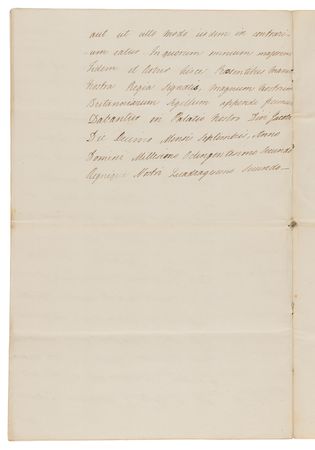 aut ut ullo modo iisdem in contrari-
um eatur In quorum omnium majorem
Fidem et Robur hisce Presentibus manu
Nostra Regia Signatis, magnum Nostrum
Britanniarum Sigillum appendi fecimus
Dabantur in Palatio Nostro Divi Jacobi
Die Decimo Mensis Septembris, Anno
Domini Millesimo Octingentesimo Secundo
Regnique Nostri Quadragesimo Secundo